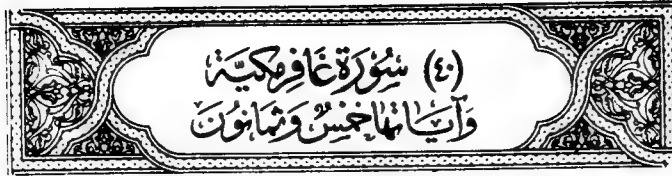 (٤٠) سُوْرَةِ غَافِرٍ مَكِّيَّة
وَآيَاتُهَا خَمْسٌ وَثَمَانُونَ